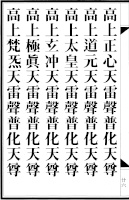 高上正心天雷聲普化天尊
高上道元天雷聲普化天尊
高上太皇天雷聲普化天尊
高上玄冲天雷聲普化天尊
高上極眞天雷聲普化天尊
高上梵炁天雷聲普化天尊